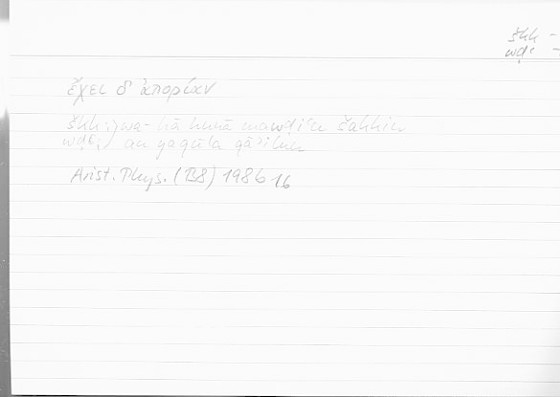 škk –
wḍʿ –
ἔχει δ' ἀπορίαν
škk; wa-hā hunā mawḍiʿu šakkin
wḍʿ; an yaqūla qāʾilun
Arist. Phys. (B8) 198b16